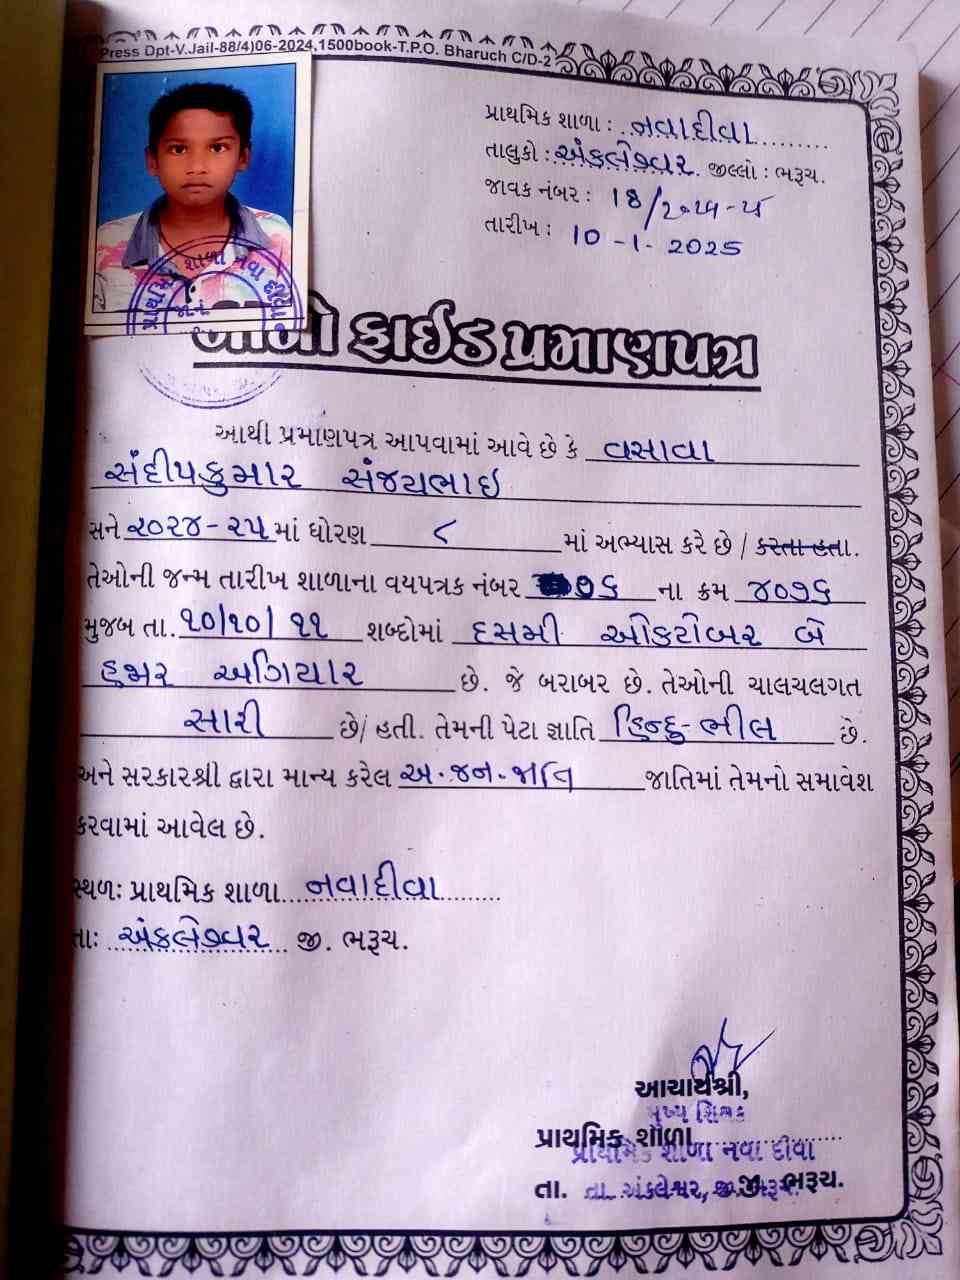 Press Dpt-V.Jail-88/4)06-2024,1500book-T.P.O. Bharuch C/D-2
પ્રાથમિક શાળા : નવાદીવા
તાલુકો : અંકલેશ્વર જીલ્લો : ભરૂચ.
જાવક નંબર : 18/૨૦૨૫-
તારીખ : 10-1-2025
પ્રાથમિક શાળા નવા દીવા
ફાઈડ પ્રમાણપત્ર
આથી પ્રમાણપત્ર આપવામાં આવે છે કે વસાવા
સંદીપકુમાર સંજયભાઇ
સને ૨૦૨૪-૨૫ માં ધોરણ ૮ માં અભ્યાસ કરે છે / કરતા હતા.
તેઓની જન્મ તારીખ શાળાના વયપત્રક નંબર ના ક્રમ ૪૦૭૬
મુજબ તા. ૧૦/૧૦/૧૧ શબ્દોમાં દસમી ઓકટોબર બે
હજાર અગિયાર છે. જે બરાબર છે. તેઓની ચાલચલગત
સારી છે/ હતી. તેમની પેટા જ્ઞાતિ હિન્દુ-ભીલ છે.
અને સરકારશ્રી દ્વારા માન્ય કરેલ અ.જન.જાતિ જાતિમાં તેમનો સમાવેશ
કરવામાં આવેલ છે.
સ્થળ: પ્રાથમિક શાળા નવાદીવા
તા: અંકલેશ્વર જી. ભરૂચ.
આચાર્યશ્રી,
મુખ્ય શિક્ષક
પ્રાથમિક શાળા
પ્રાથમિક શાળા નવા દીવા
તા. તા. અંકલેશ્વર, જી. ભરૂચ. જી. ભરૂચ.